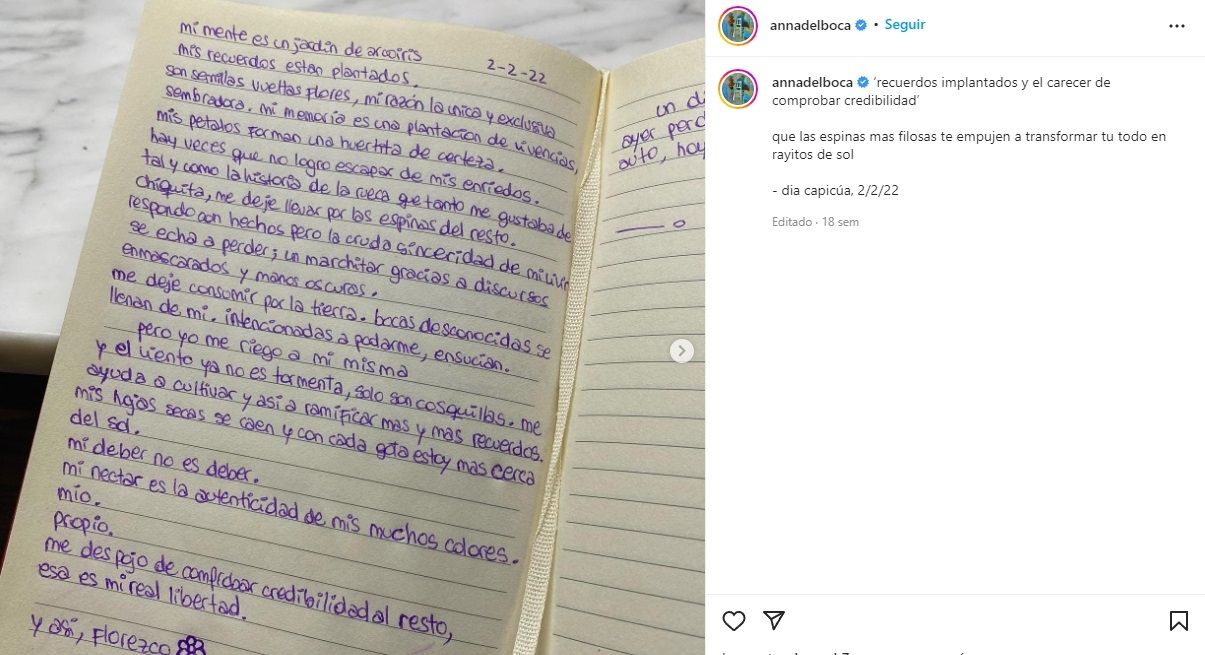 mi mente es un jardin de arcoiris
2-2-22
mis recuerdos estan plantados.
son semillas vueltas flores, mi razón la unica y exclusiva
sembradora. mi memoria es una plantacion de vivencias,
mis petalos forman una huertita de certeza.
hay veces que no logro escapar de mis enriedos.
tal y como la historia de la rueca que tanto me gustaba de
chiquita, me deje llevar por las espinas del resto.
respondo con hechos pero la cruda sinceridad de mi
se echa a perder; un marchitar gracias a discursos
enmascarados y manos oscuras.
me deje consumir por la tierra. bocas desconocidas se
llenan de mi. intencionadas a podarme, ensucian.
pero yo me riego a mi misma
y el viento ya no es tormenta, solo son cosquillas. me
ayuda a cultivar y asi a ramificar mas y mas recuerdos.
mis hojas secas se caen y con cada gota estoy mas cerca
del sol.
mi deber no es deber.
mi nectar es la autenticidad de mis muchos colores.
mio.
propio.
me despojo de comprobar credibilidad al resto,
esa es mi real libertad.
y asi, florezco
un
ayer
auto, hoy
annadelboca • Seguir
annadelboca ‘recuerdos implantados y el carecer de
comprobar credibilidad’
que las espinas mas filosas te empujen a transformar tu todo en
rayitos de sol
- dia capicúa, 2/2/22
Editado · 18 sem